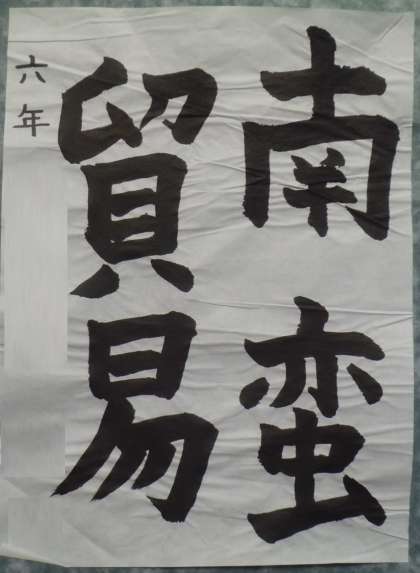 南蛮
貿易
六年